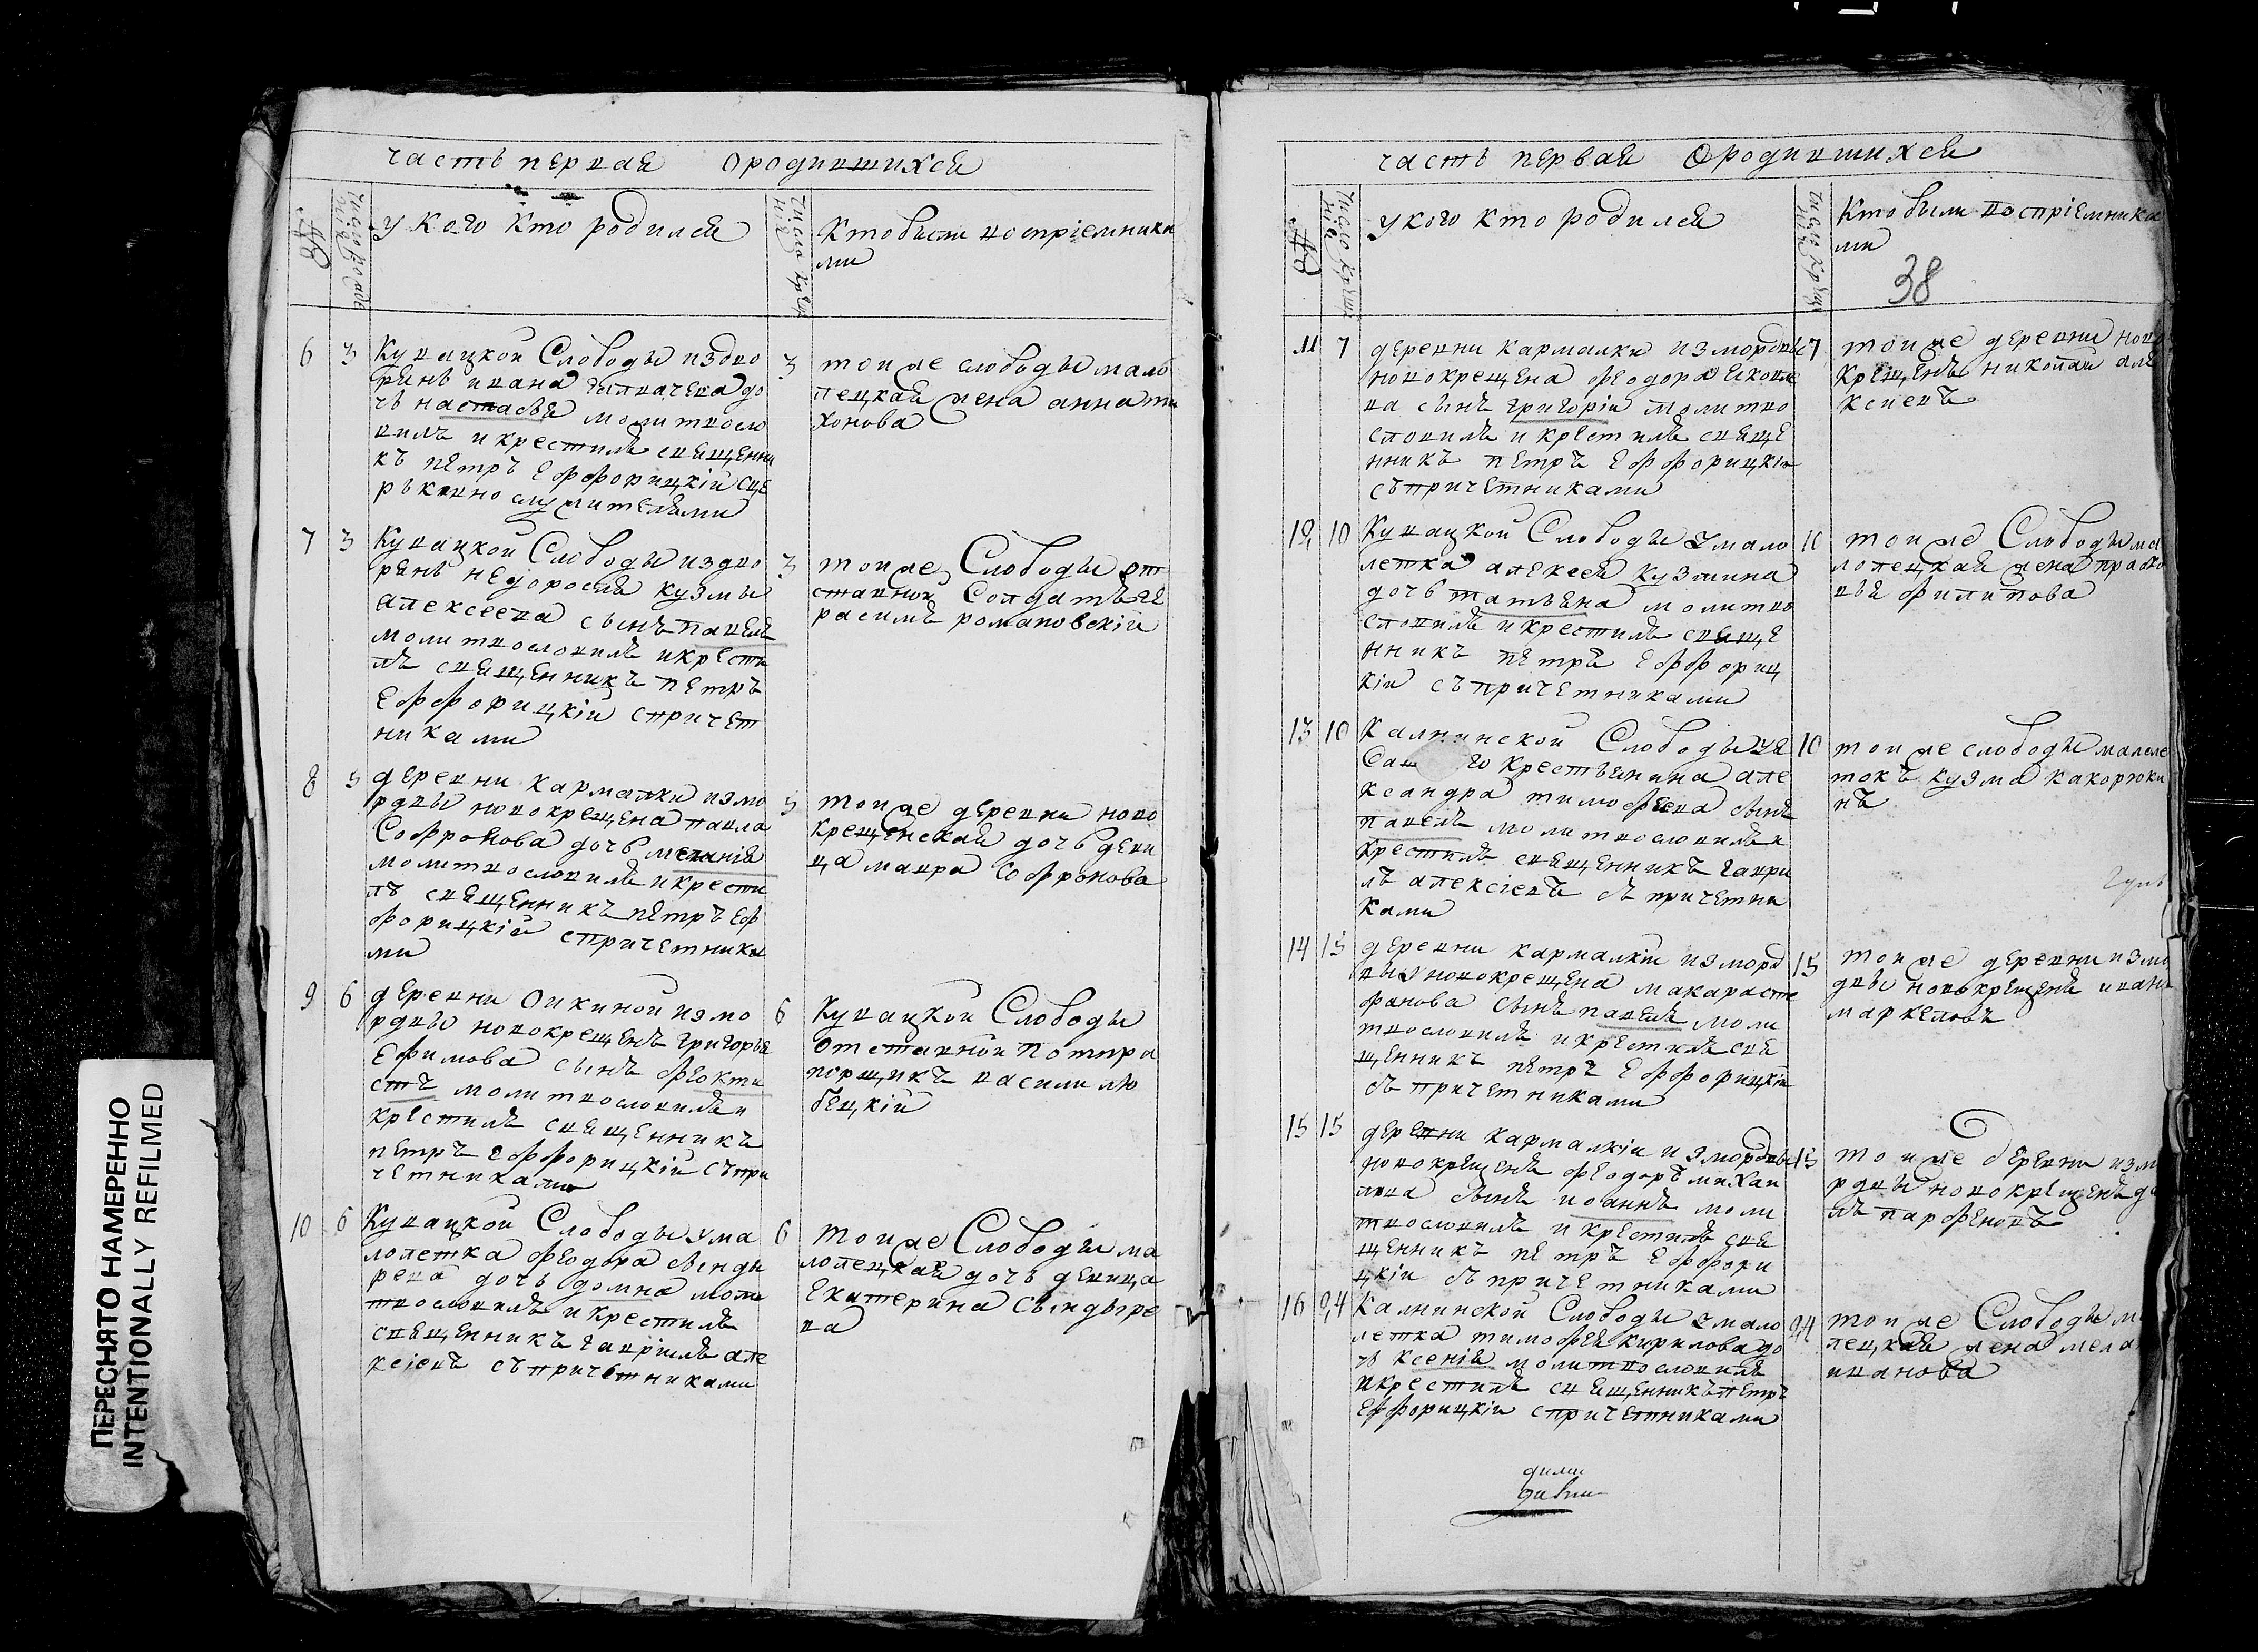 часть первая ородившихся
№
у кого кто родился
Кто были воспріемника
ми
6 3 Кувацкой Слободы издво
рянъ ивана
чь настасья молитвосло
вилъ и крестилъ священни
къ петръ Еффорицкій сце
рьковно служителями
3 той же слободы мало
лецкая жена анна ти
хонова
7 3 Кувацкой Слободы издво
рянъ недоросля кузмы
алексеева сынъ павелъ
молитвословилъ икрести
лъ священникъ петръ
Еффорицкій спричет
никами
3 той же Слободы от
ставной Солдатъ ге
расимъ романовскій
8 5 деревни кармалки измо
рдвы новокрещена павла
Софронова дочь меланія
молитвословилъ икрести
лъ священникъ петръ Еф
форицкій спричетника
ми
5 той же деревни ново
крещенская дочь деви
ца мавра Софронова
9 6 деревни Оикиной измо
рдвы новокрещенъ григорья
Ефимова сынъ феокти
стъ молитвословилъ и
крестилъ священникъ
петръ Еффорицкій съпри
четниками
6 Кувацкой Слободы
отставной потпра
порщикъ василий лю
бецкій
10 6 Кувацкой Слободы у ма
лолетка феодора свинды
рева дочь домна моли
твословилъ и крестилъ
священникъ гавріилъ але
ксіевъ съпричетниками
6 той же Слободы ма
лолецкая дочь девица
Екатерина Свиндыре
ва
часть первая Ородившихся
№
у кого кто родился
Кто были воспріемника
ми
38
11 7 деревни кармалки измордвы
новокрещена феодора
ва сынъ григоріи молитво
словилъ и крестилъ свяще
нникъ петръ Еффорицкіи
съпричетниками
7 той же деревни ново
крещенъ николаи але
ксиевъ
12 10 Кувацкой Слободы у мало
летка алексея кузмина
дочь татьяна молитво
словилъ и крестилъ свяще
нникъ петръ Еффориц
кіи съпричетниками
10 той же Слободы ма
лолецкая жена праско
вья филипова
13 10 Калнинской Слободы
крестьянина але
ксандра тимофеева сынъ
павелъ молитвословилъ и
крестилъ священникъ гаври
лъ алексіевъ съ причетни
ками
10 той же слободы малоле
токъ кузма какорюки
нъ
14 15 деревни кармалкіи изморд
вы у новокрещена макара сте
фанова сынъ павелъ моли
твословилъ и крестилъ свя
щенникъ петръ Еффорицкіи
съ причетниками
15 той же деревни измо
рдвы новокрещенъ иванъ
маркеловъ
15 15 деревни кармалкіи измордвы
новокрещенъ феодоръ михаи
лова сынъ иоаннъ моли
твословилъ и крестилъ свя
щенникъ петръ Еффори
цкіи съ причетниками
15 той же деревни измо
рдвы новокрещенъ да
лъ парфеновъ
16 24 Калнинской Слободы у мало
летка тимофея кирилова до
чь ксенія молитвословилъ
икрестилъ священникъ петръ
Еффорицкіи спричетниками
24 той же Слободы м
лецкая жена мела
иванова
ПЕРЕСНЯТО НАМЕРЕННО
INTENTIONALLY REFILMED